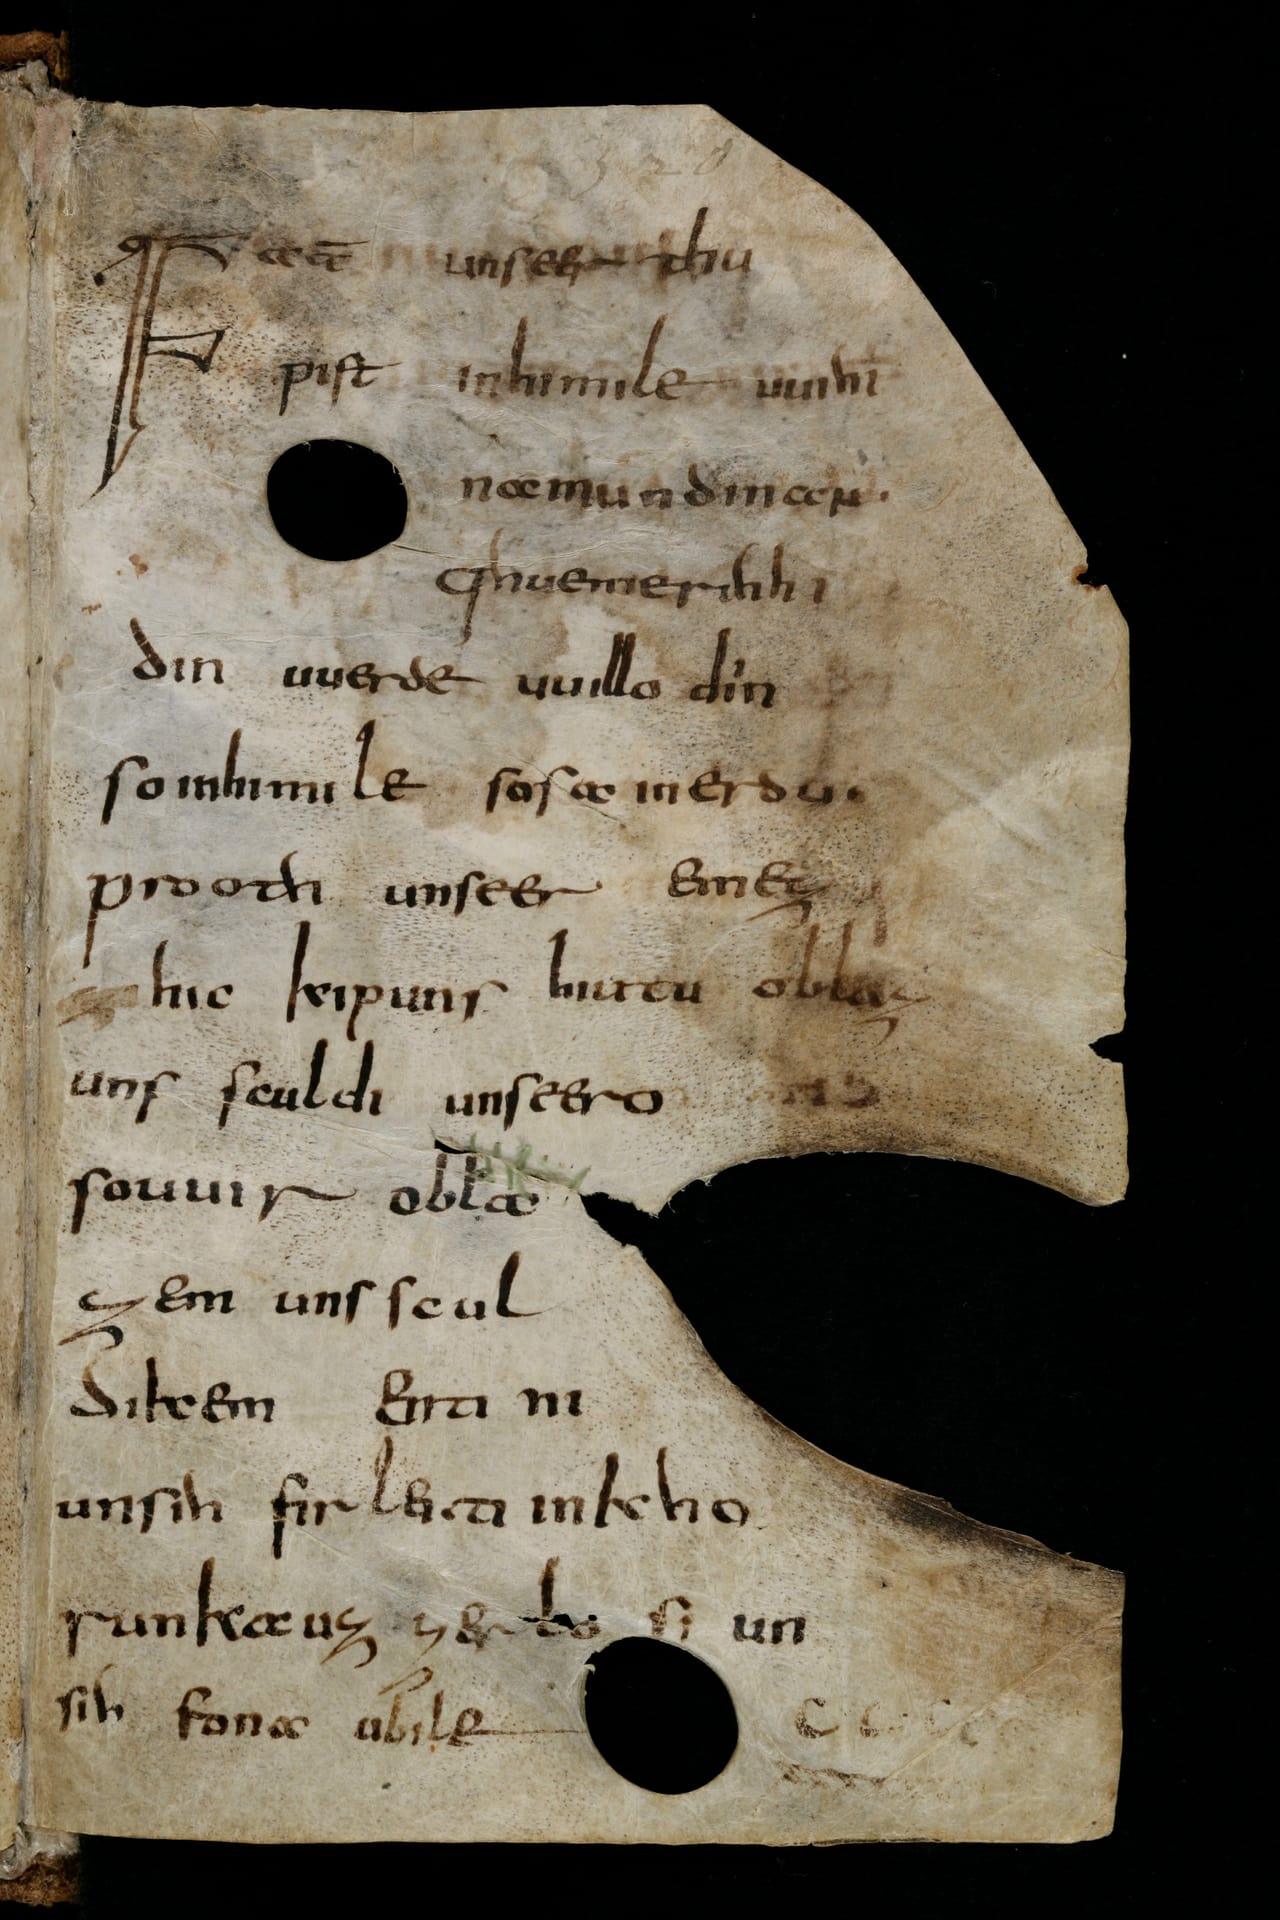 Fat̄ unseer thu
pist inhimile uuihi
namun dinan
qhueme rihhi
din uuerde uuillo diin
so inhimile sosa inerdu.
prooth unseer emez
zhic kip uns hiutu oblaz
uns sculdi unseero
so uuir obla
zem uns scul
dikem enti ni
unsih firleiti in khо
runka uz zer losi un
sih fona ubile